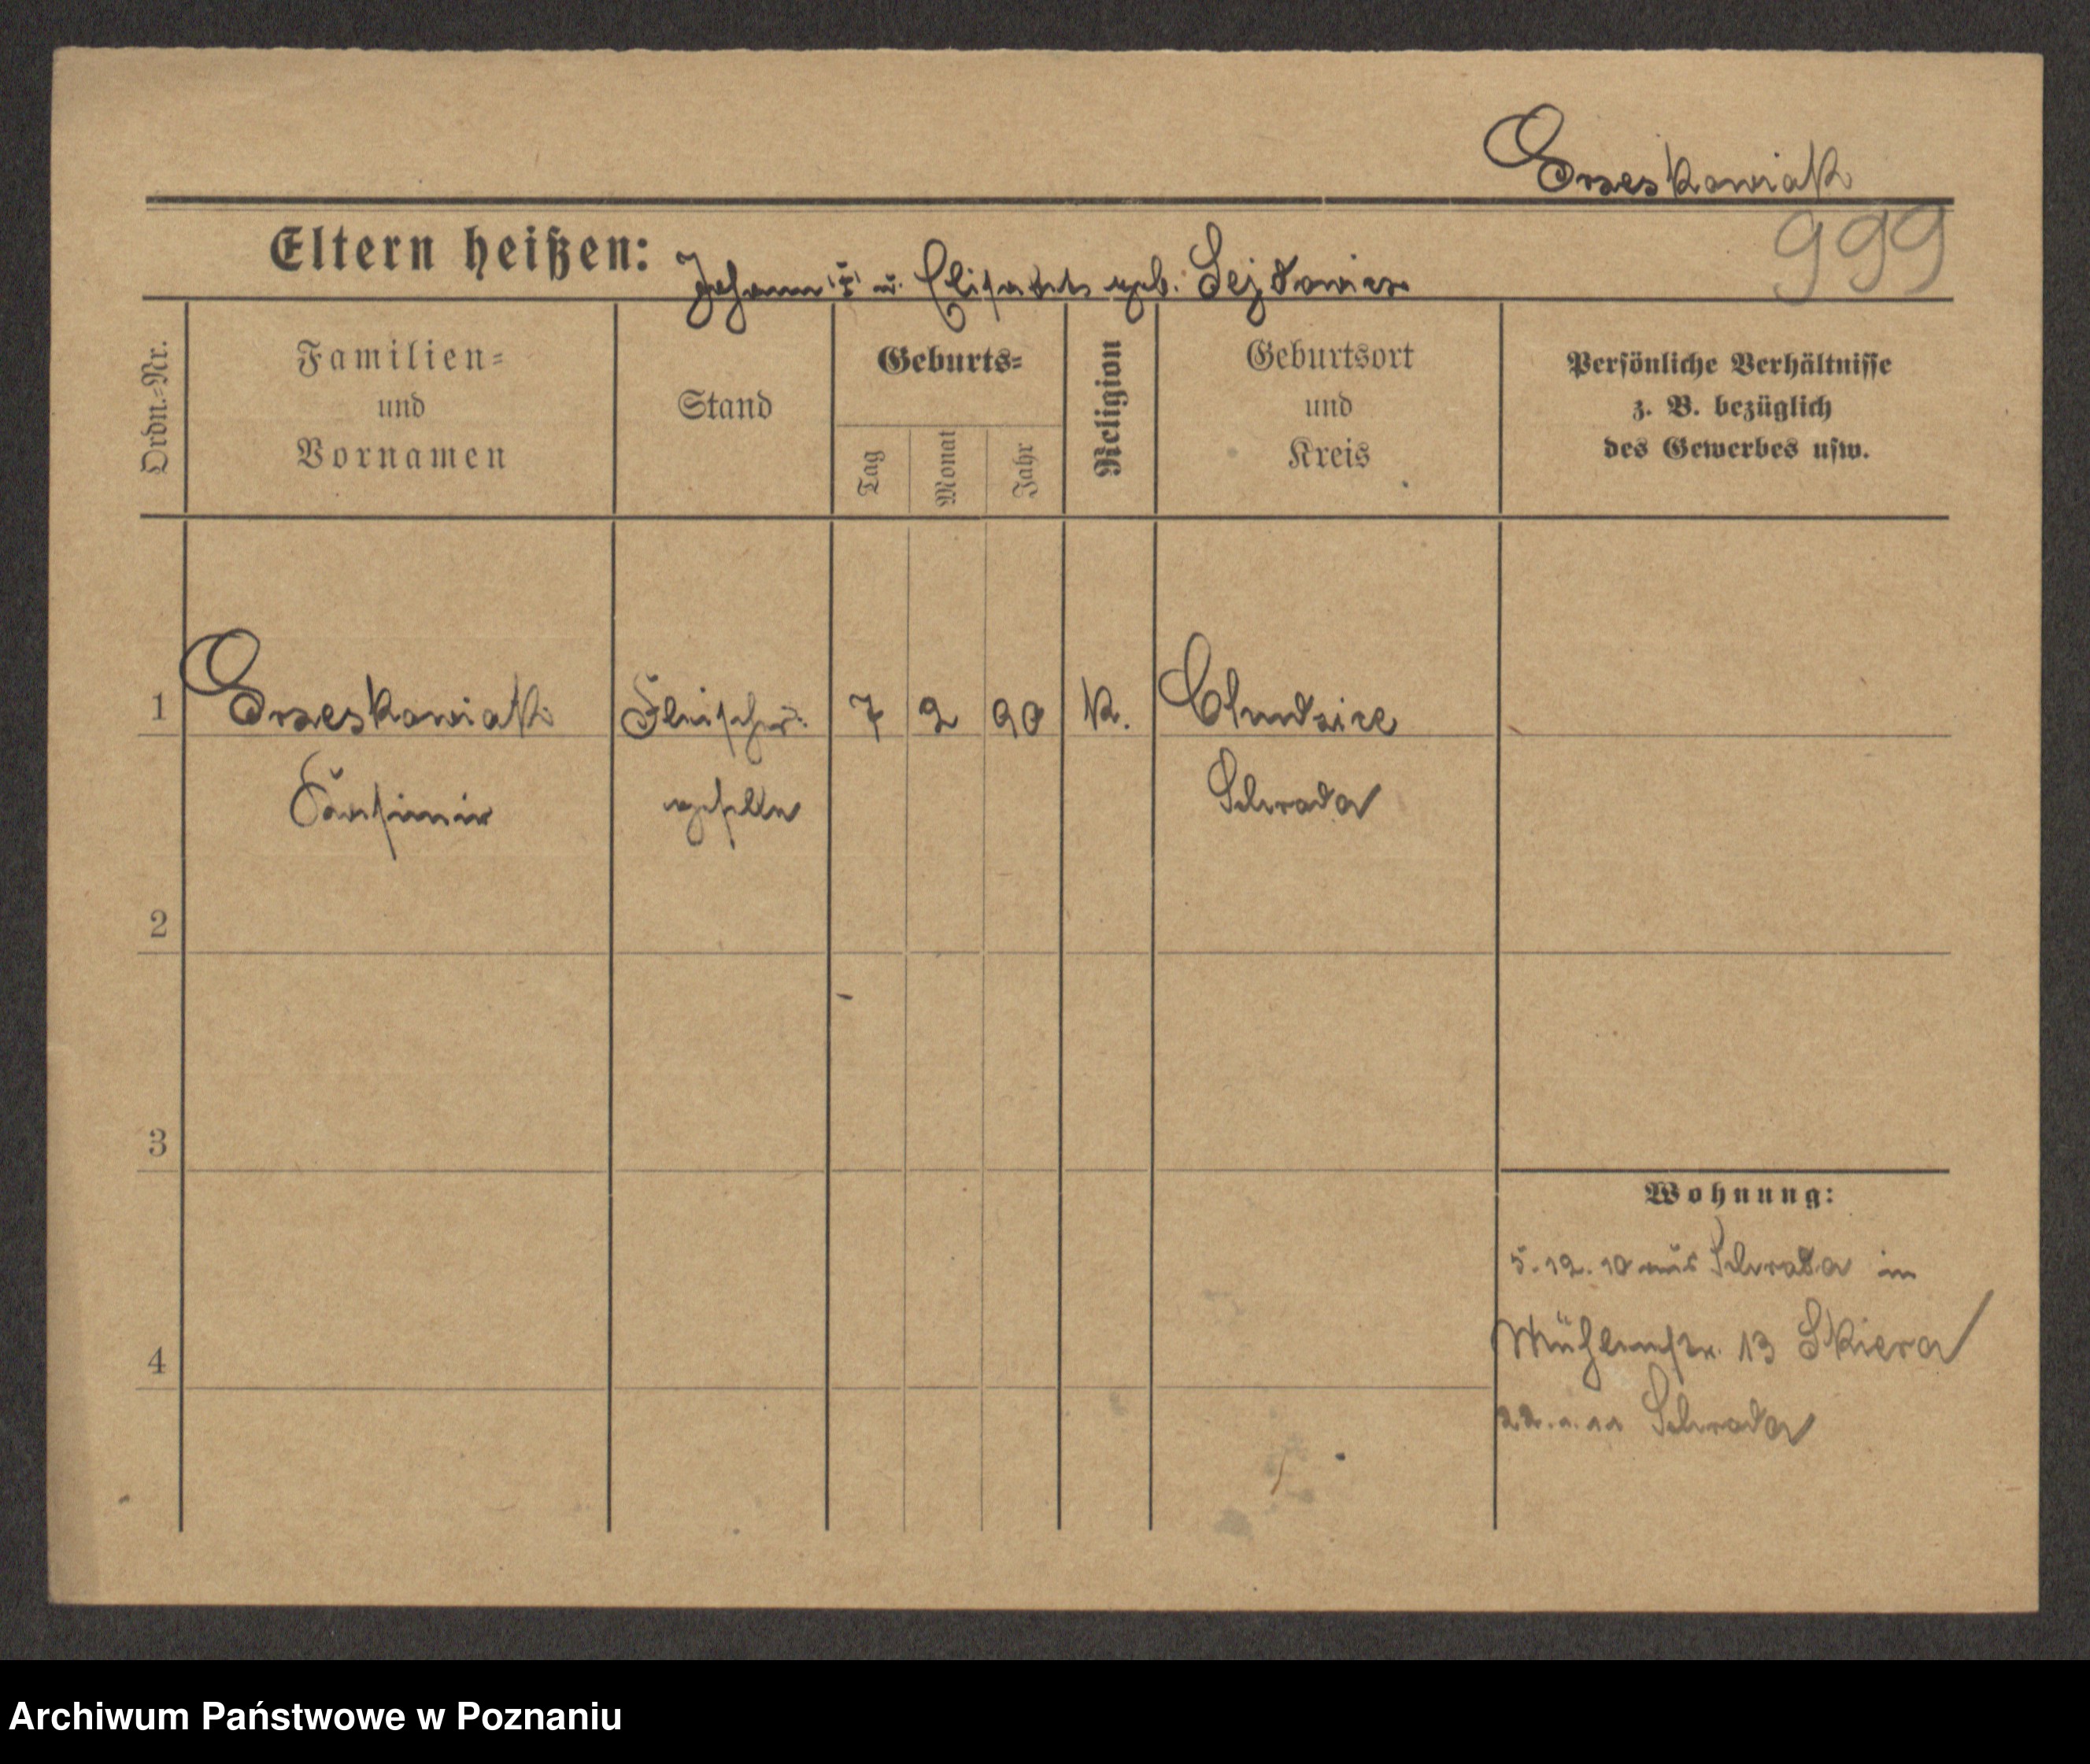 Grzeskowiak
999
Eltern heißen: Johann u. Elisabeth geb. Sejdowicz
Ordn.-Nr.
Familien-
und
Vornamen
Stand
Geburts-
Tag
Monat
Jahr
Religion
Geburtsort
und
Kreis
Persönliche Verhältnisse
z. B. bezüglich
des Gewerbes usw.
1 Grzeskowiak Fleischer 7 2 90 K. Chudzice
Kasimir geselle Schroda
2
3
4
Wohnung:
5.12.10 aus Schroda in
Mühlenstr. 13 Skiera
22.1.11 Schroda
Archiwum Państwowe w Poznaniu